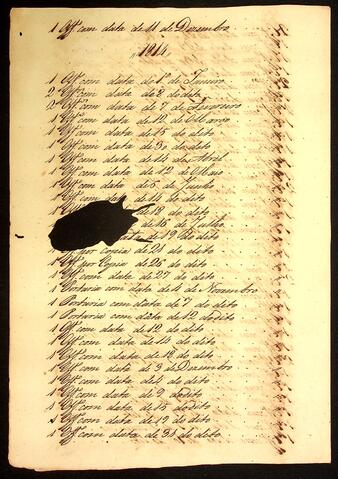 1 Off. com data de 11 de Dezembro
1814
1 Off. com data de 1º de Janeiro
2 Off. com data de 2 do dito
2 Off. com data de 7 de Fevereiro
1 Off. com data de 12 de Março
1 Off. com data de 15 do dito
1 Off. com data de 30 do dito
1 Off. com data de 14 de Abril
1 Off. com data de 12 de Maio
1 Off. com data de 5 de Junho
1 Off. com data de 14 do dito
de 18 do dito
de 15 de Julho
data de 19 do dito
Off. por Copia de 21 do dito
1 Off. por Copia de 25 do dito
1 Off. com data de 27 do dito
1 Portaria com data de 4 de Novembro
1 Portaria com data de 7 do dito
1 Portaria com data de 12 do dito
1 Off. com data de 12 do dito
1 Off. com data de 14 do dito
1 Off. com data de 18 do dito
1 Off. com data de 3 de Dezembro
1 Off. com data de 4 do dito
1 Off. com data de 9 do dito
1 Off. com data de 15 do dito
1 Off. com data de 19 do dito
1 Off. com data de 31 do dito